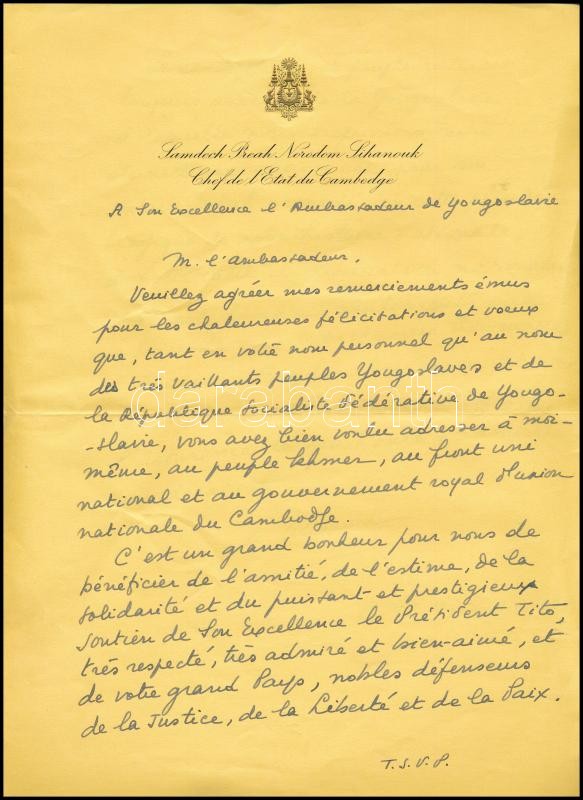 Samdech Preah Norodom Sihanouk
Chef de l'Etat du Cambodge
A Son Excellence l'Ambassadeur de Yougoslavie
M. l'Ambassadeur,
Veuillez agréer mes remerciements émus
pour les chaleureuses félicitations et voeux
que, tant en votre nom personnel qu'au nom
des très vaillants peuples Yougoslaves et de
la République Socialiste Fédérative de Yougo-
-slavie, vous avez bien voulu adresser à moi-
même, au peuple khmer, au front uni
national et au gouvernement royal d'union
nationale du Cambodge.
C'est un grand bonheur pour nous de
bénéficier de l'amitié, de l'estime, de la
solidarité et du puissant et prestigieux
soutien de Son Excellence le Président Tito,
très respecté, très admiré et bien-aimé, et
de votre grand Pays, nobles défenseurs
de la Justice, de la Liberté et de la Paix.
T.S.V.P.
darabanth